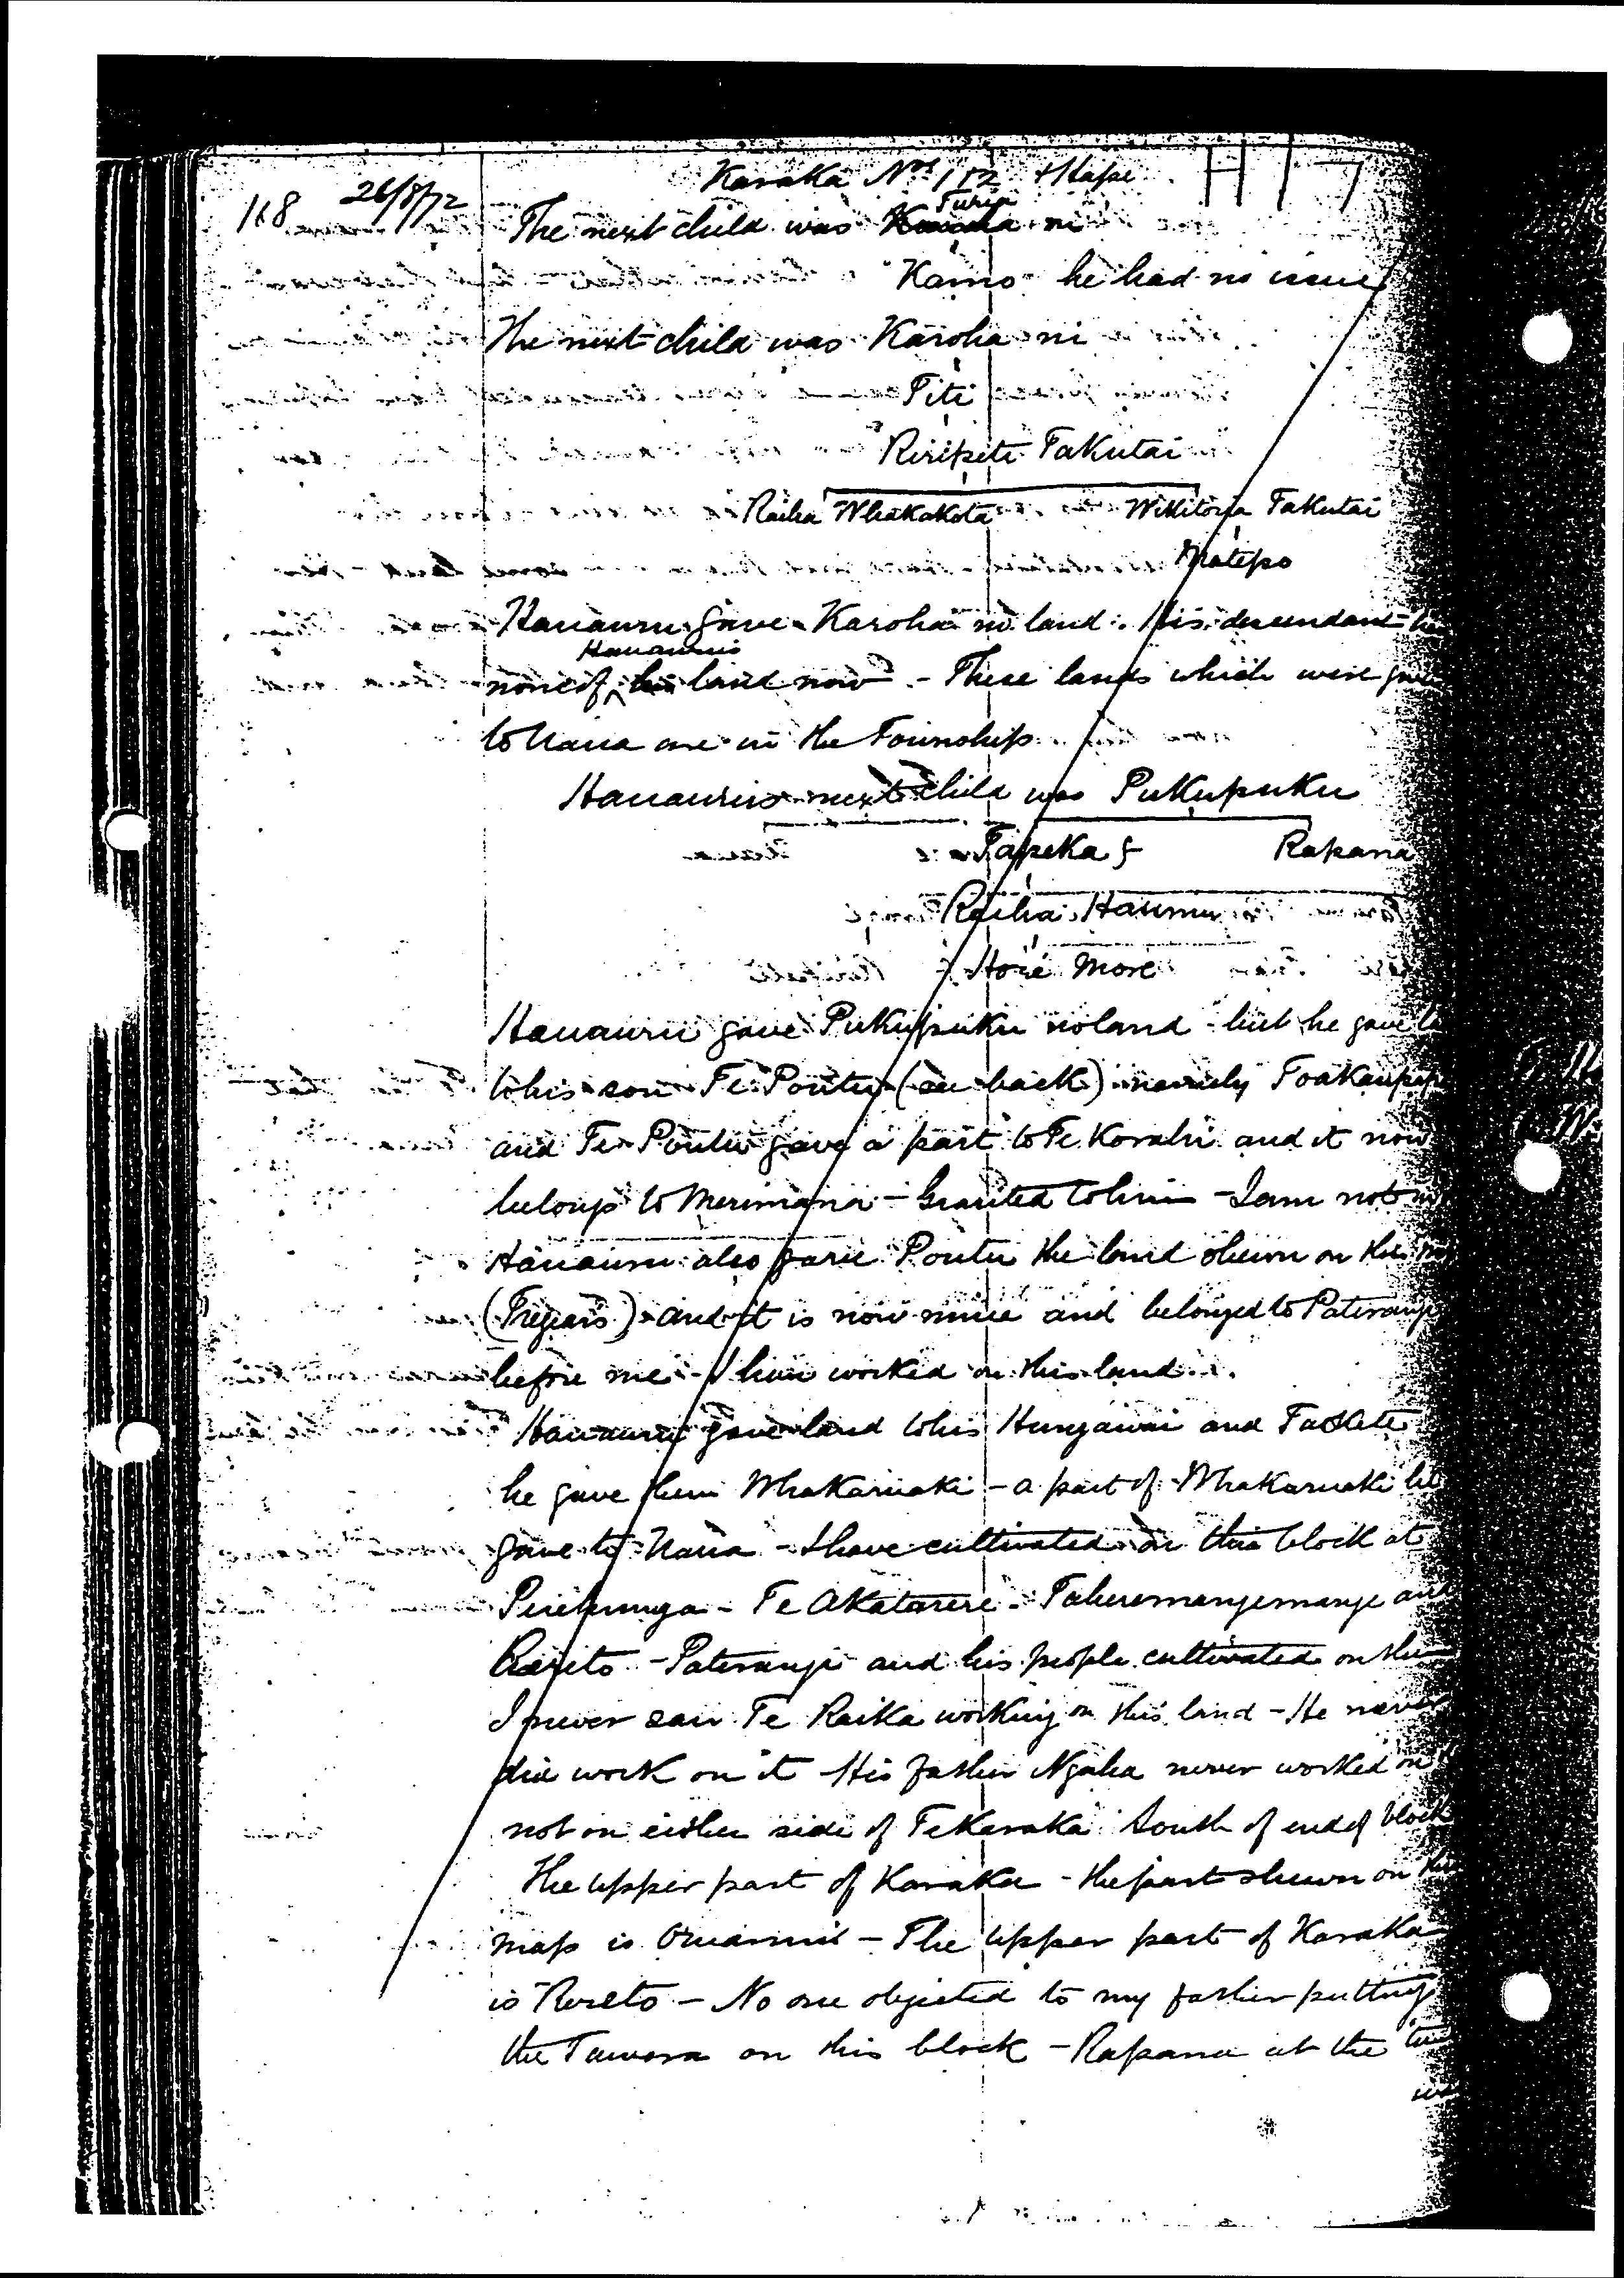 Karaka Nos 1 & 2 & Hape. H 17
168 26/8/72
Turia
The next child was Karoha ni
Kamo he had no issue
The next child was Karoha ni
Titi
Riripeti Takutai
Raiha Whakakota Wikitoria Takutai
Matepo
Hauauru gave Karoha no land. His descendants
Hauauru's
none of his land now - These lands which were given
to Naua are in the Township
Hauauru's next child was Pukupuku
Tapeka f Rapana
Raiha Haumu
Hore More
Hauauru gave Pukupuku no land but he gave
to his son Te Poutu (see back) namely
and Te Poutu gave a part to Te Korahi and it now
belongs to Merimana - Granted to him - I am not in
Hauauru also gave Poutu the land shewn on this
and it is now mine and belonged to Paterangi
before me - I have worked on this land.
Hauauru gave land to his Hungawai and
he gave them Whakaruaki - a part of Whakaruaki he
gave to Naua - I have cultivated on this block at
Te Akatarere - Taheremangemange and
Rereito - Paterangi and his people cultivated on
I never saw Te Raika working on this land - He never
did work on it His father Ngaha never worked on
not on either side of Te Karaka South of end of block
The upper part of Karaka - the part shewn on
map is - The upper part of Karaka
is - No one objected to my father putting
the Tawera on this block - Rapana at the time